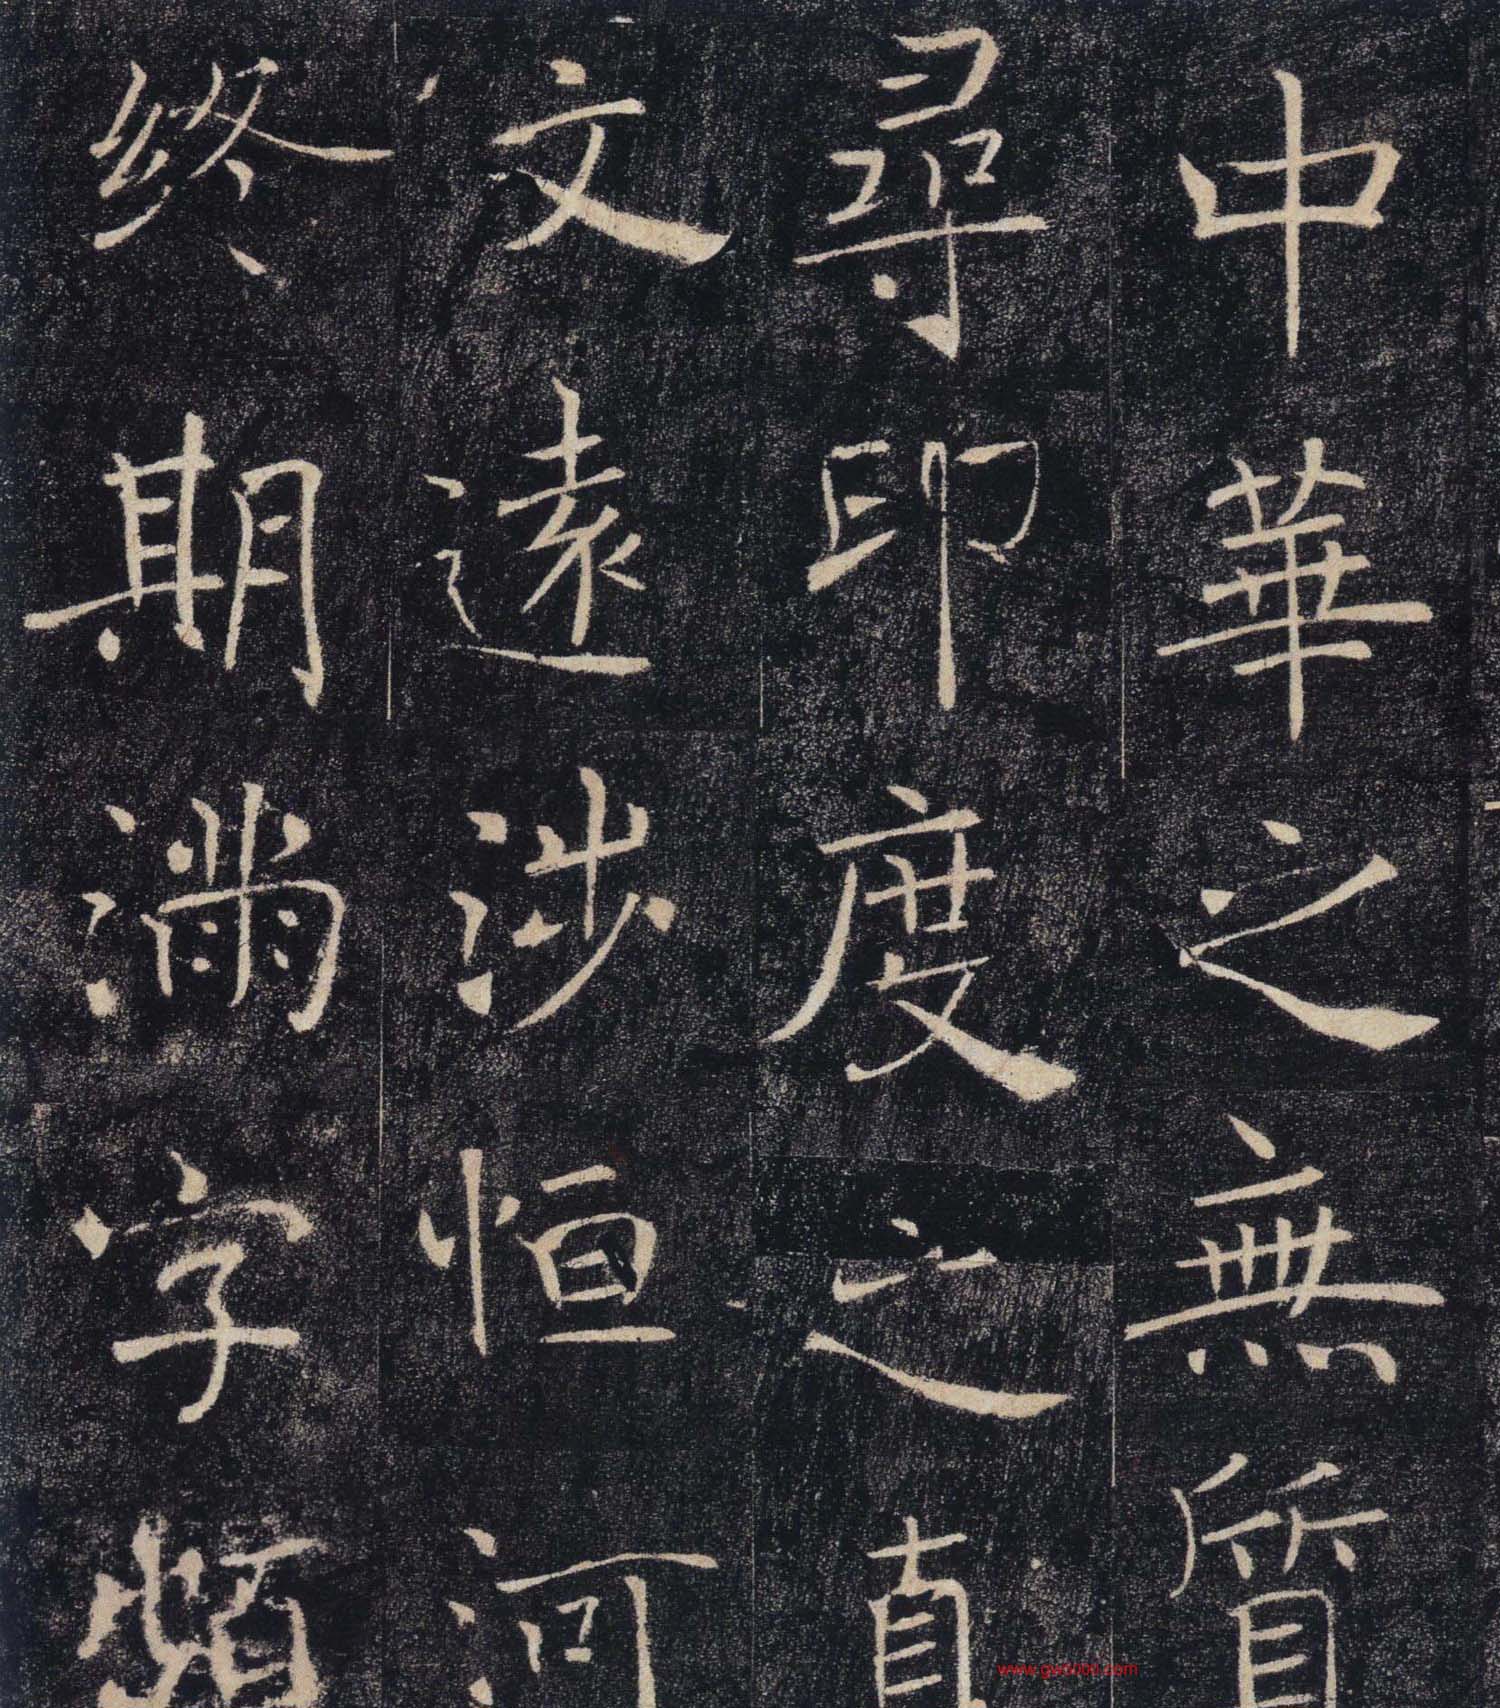 中華之無質
尋印度之真
文遠涉恒河
終期滿字頻
www.gw5000.com